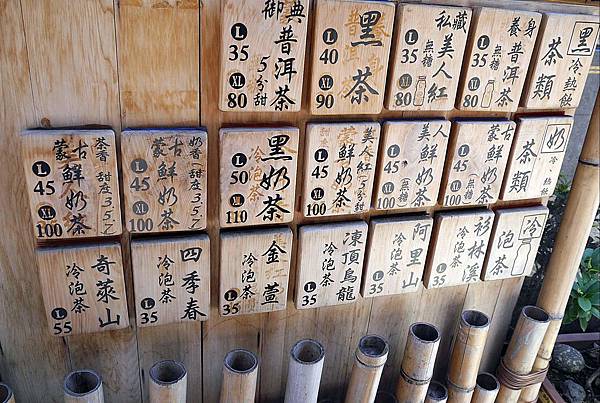 黑
茶類
冷熱飲
養身
普洱茶
無糖
L 35
XL 80
私藏
美人紅
無糖
L 35
XL 80
黑茶
L 40
XL 90
御典
普洱茶
5分甜
L 35
XL 80
奶
茶類
冷
蒙古
鮮奶茶
無糖
L 45
XL 100
美人
鮮奶茶
無糖
L 45
XL 100
美人
鮮奶茶
5分甜
L 45
XL 100
黑奶茶
冷泡茶
L 50
XL 110
奶香 甜度3.5.7
蒙古
鮮奶茶
L 45
XL 100
茶香 甜度3.5.7
蒙古
鮮奶茶
L 45
XL 100
冷泡茶
杉林溪
冷泡茶
L 35
阿里山
冷泡茶
L 35
凍頂烏龍
冷泡茶
L 35
金萱
冷泡茶
L 35
四季春
冷泡茶
L 35
奇萊山
冷泡茶
L 55